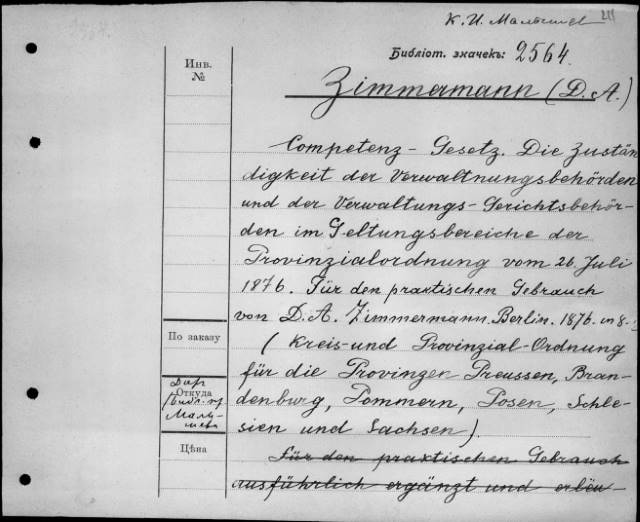 К. И. Малышев
Библіот. значекъ: 2564.
Инв.
№
Zimmermann (D. A.)
Competenz - Gesetz. Die Zustän
digkeit der Verwaltnungsbehörden
und der Verwaltungs-Gerichtsbehör-
den im Geltungsbereiche der
Provinzialordnung vom 26. Juli
1876. Für den praktischen Gebrauch
von D. A. Zimmermann. Berlin. 1876. in 8.
По заказу
(Kreis- und Provinzial-Ordnung
für die Provinzen Preussen, Bran-
denburg, Pommern, Posen, Schle-
sien und Sachsen).
Даръ
Откуда
Малы-
шева
Цѣна
Für den praktischen Gebrauch
ausführlich ergänzt und erläu-